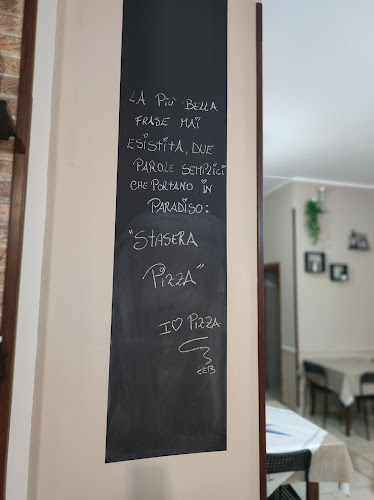 LA PIÙ BELLA
FRASE MAI
ESISTITA, DUE
PAROLE SEMPLICI
CHE PORTANO IN
PARADISO:
"STASERA
PIZZA"
I♡ PIZZA